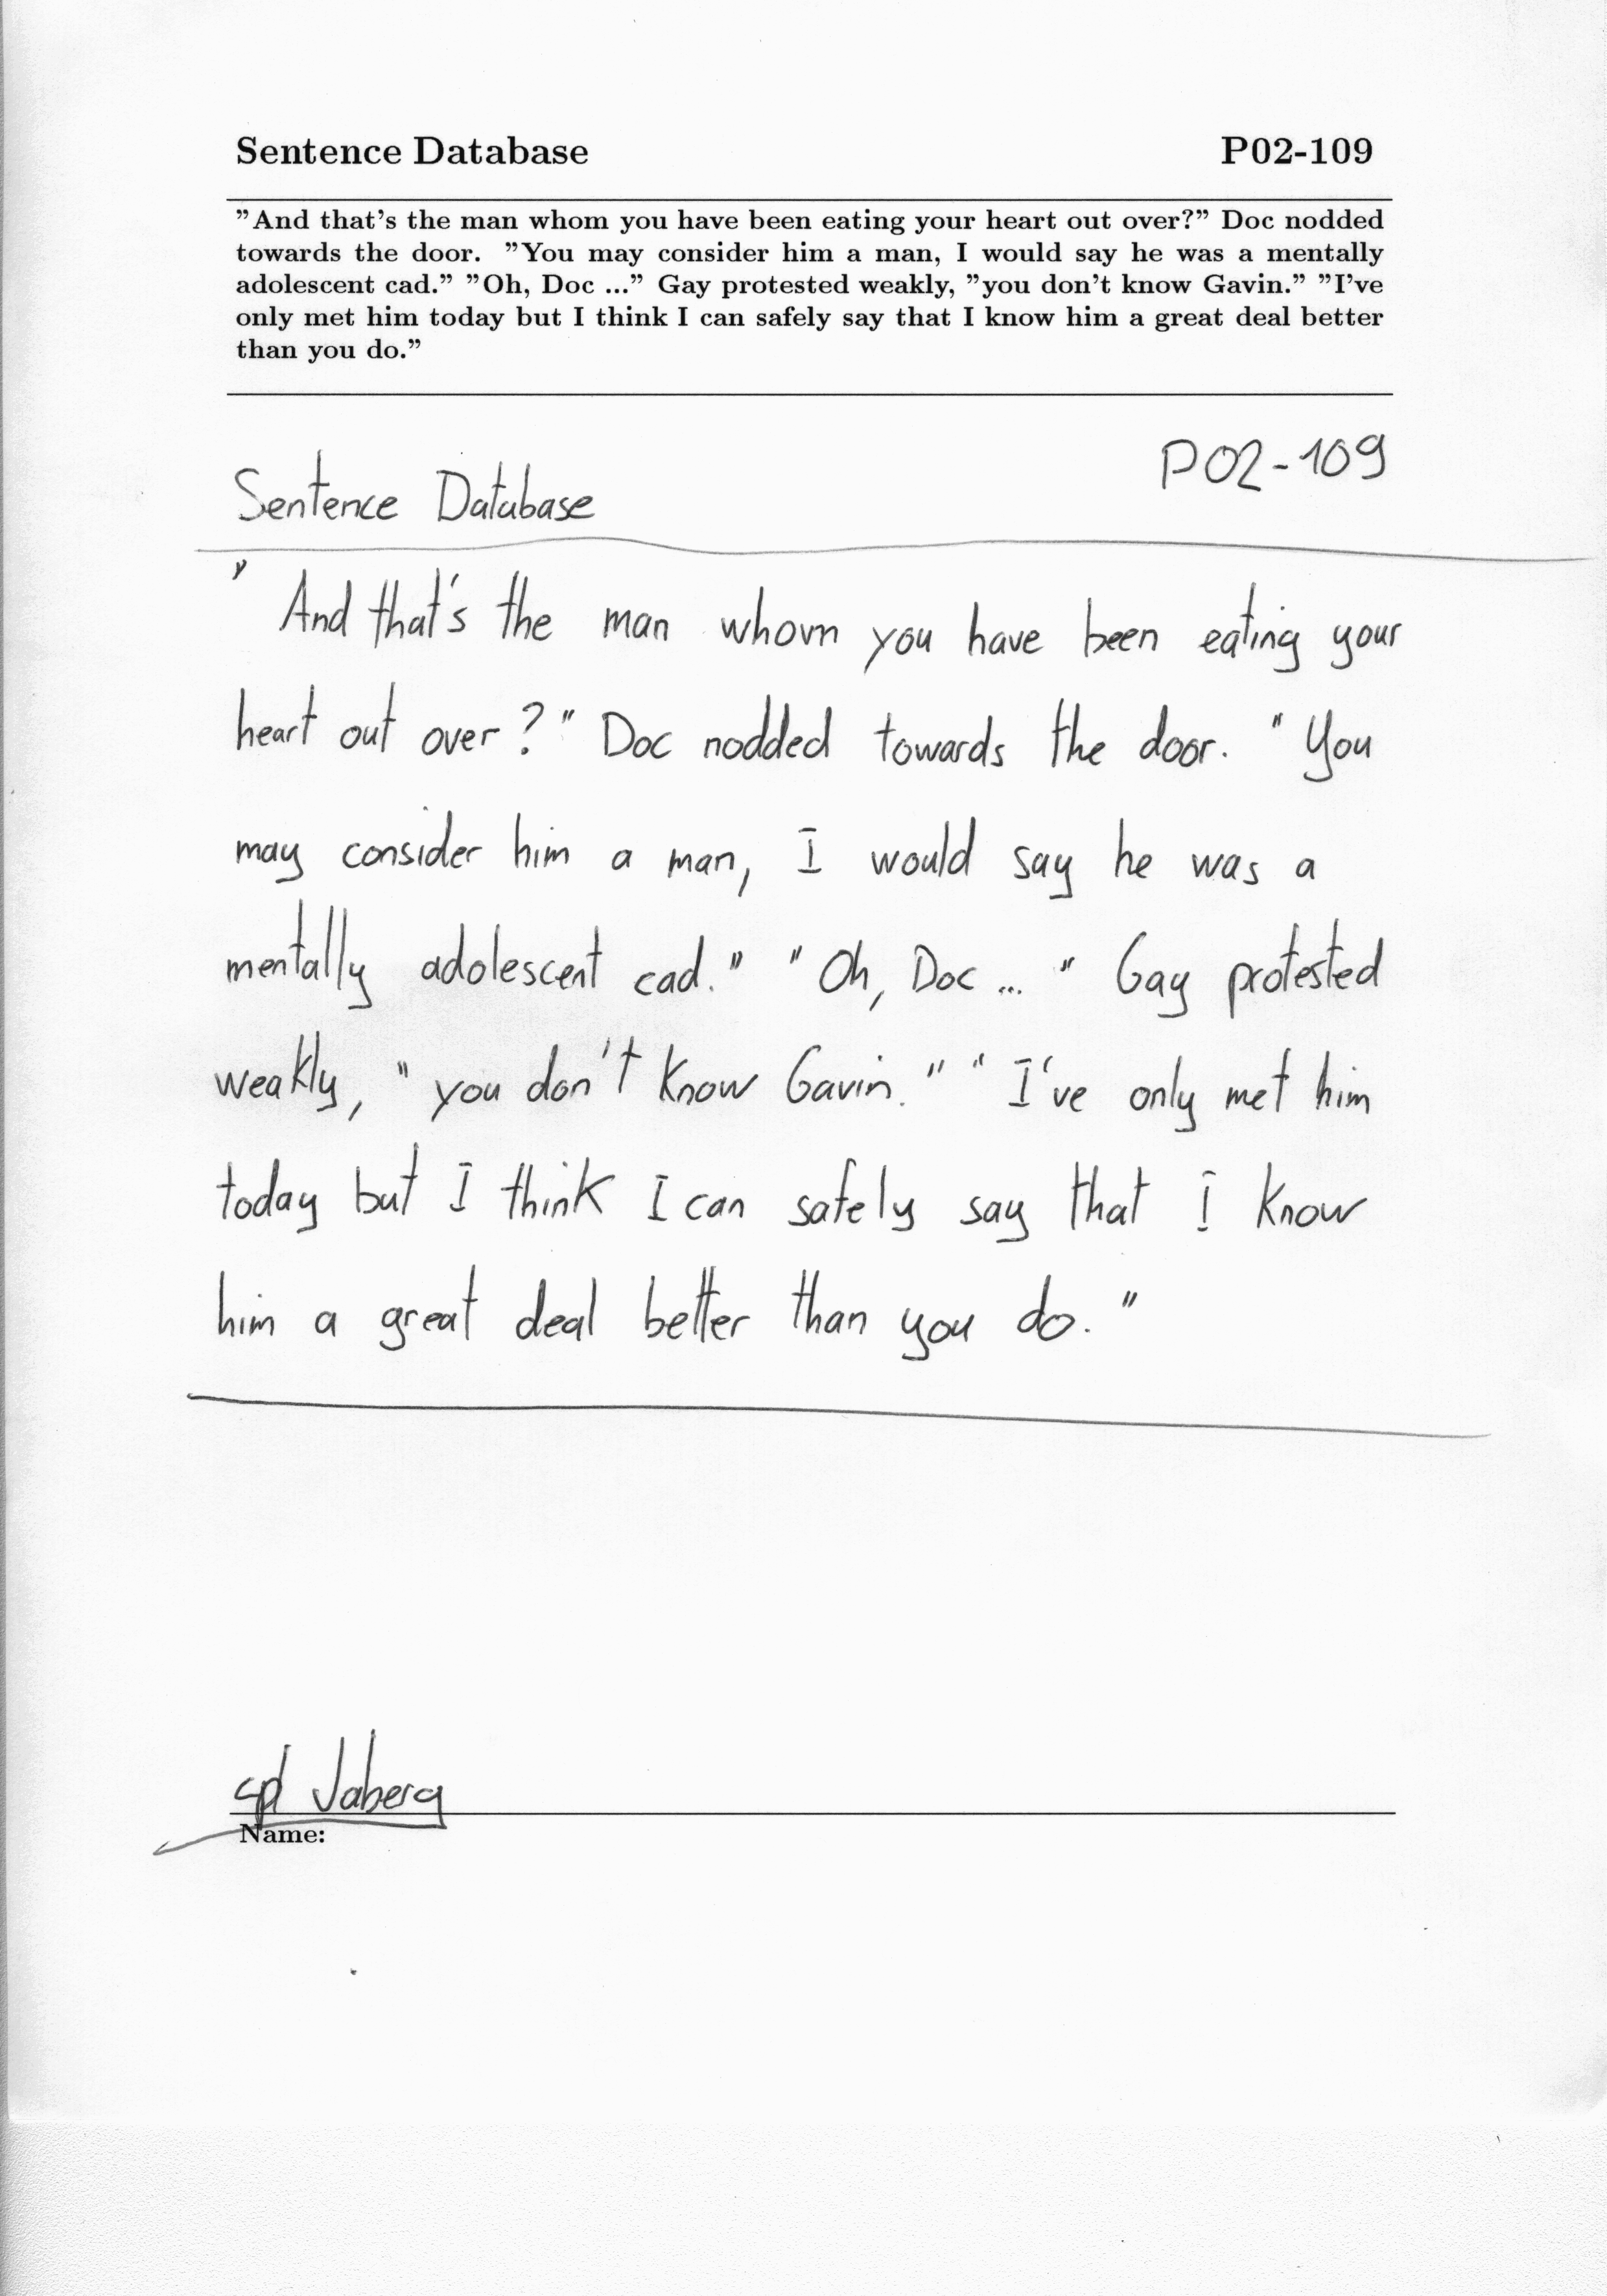 Sentence Database P02-109
”And that’s the man whom you have been eating your heart out over?” Doc nodded
towards the door. ”You may consider him a man, I would say he was a mentally
adolescent cad.” ”Oh, Doc ...” Gay protested weakly, ”you don’t know Gavin.” ”I’ve
only met him today but I think I can safely say that I know him a great deal better
than you do.”
Sentence Database P02-109
" And that's the man whom you have been eating your
heart out over?" Doc nodded towards the door. "You
may consider him a man, I would say he was a
mentally adolescent cad." "Oh, Doc ... " Gay protested
weakly, "you don't know Gavin." "I've only met him
today but I think I can safely say that I know
him a great deal better than you do."
cpl Jaberg
Name: